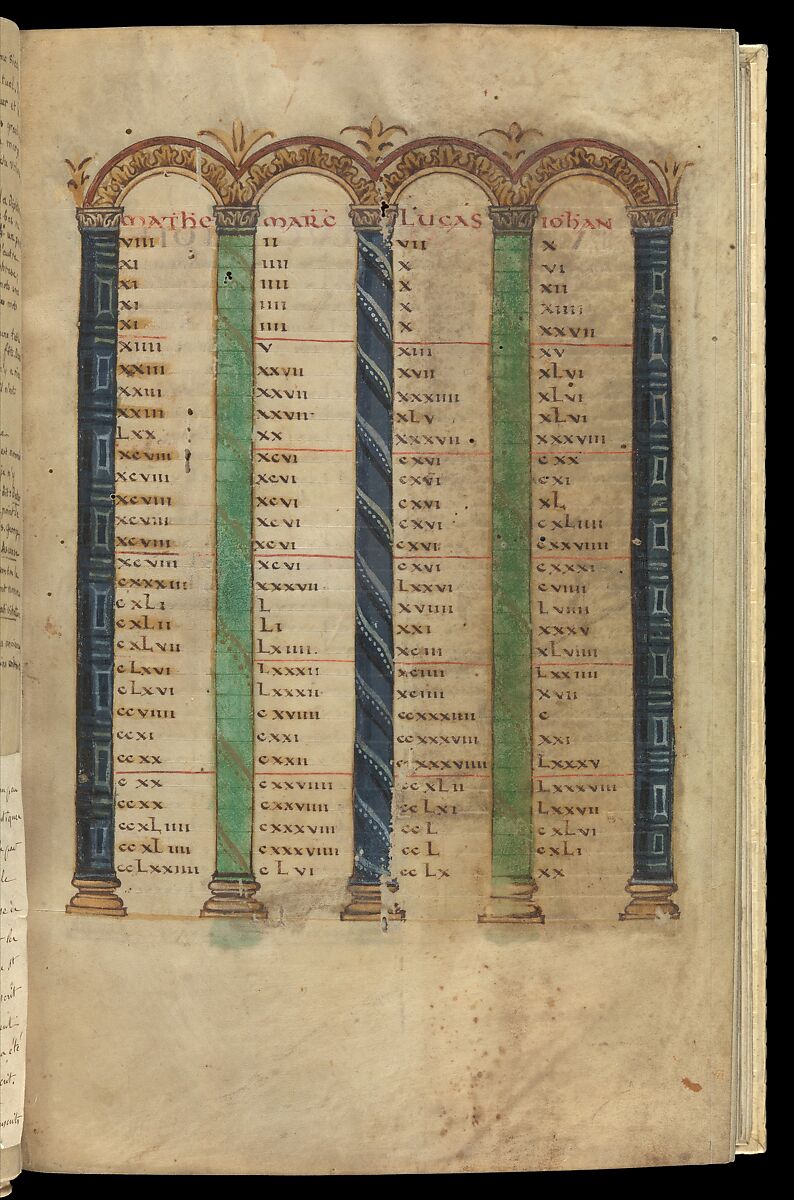 mathe marc Lucas iohan
viii ii vii x
xi iiii x vi
xi iiii x xii
xi iiii x xiiii
xi iiii x xxvii
xiiii v xiii xv
xxiii xxvii xvii xLvi
xxiii xxvii xxxiiii xLvi
xxiii xxvii xLv xLvi
Lxx xx xxxvii xxxviii
xcviii xcvi cxvi cxx
xcviii xcvi cxvi cxi
xcviii xcvi cxvi xL
xcviii xcvi cxvi cxLiiii
xcviii xcvi cxvi cxxviiii
xcviii xcvi cxvi cxxxi
cxxxiii xxxvii Lxxvi cviiii
cxLi L xviiii Lviiii
cxLii Li xxi xxxv
cxLvii Lxiiii xciii xLviiii
cLxvi Lxxxii xciiii Lxxiiii
cLxvi Lxxxii xciiii xvii
ccviiii cxviiii ccxxxiiii c
ccxi cxxi ccxxxviii xxi
ccxx cxxii ccxxxviiii Lxxxv
cxx cxxviiii ccxLii Lxxxviii
ccxx cxxviiii ccLxi Lxxvii
ccxLiiii cxxxviiii ccL cxLvi
ccxLiiii cxxxviiii ccL cxLi
ccLxxiiii cLvi ccLx xx